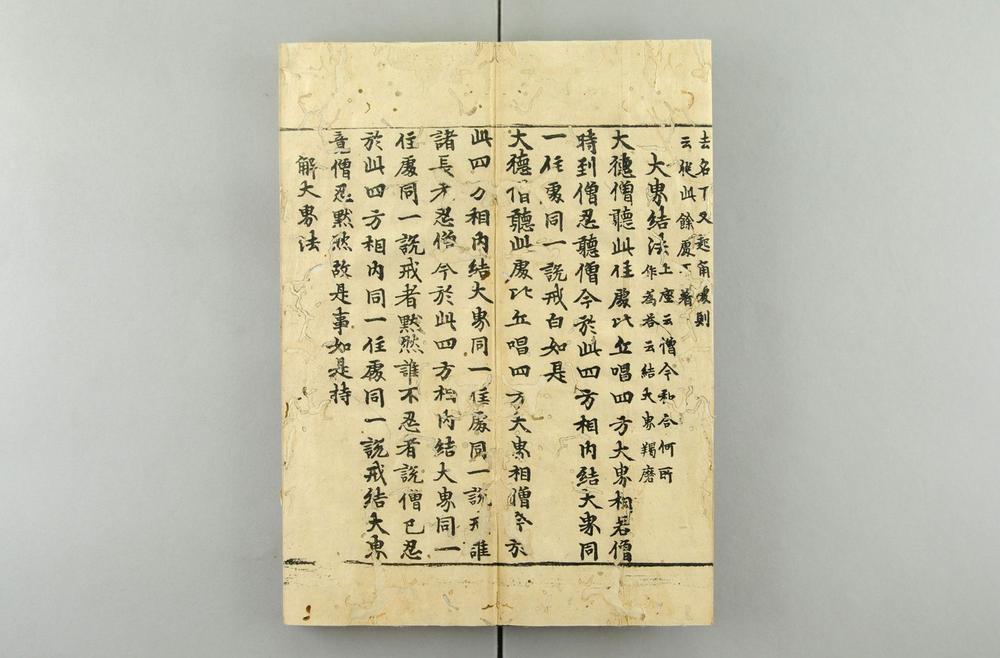 去名下又起角處則
云從此餘處下着
大界結法
上座云僧今和合何所
作為荅云結大界羯磨
大德僧聽此住處比丘唱四方大界相若僧
時到僧忍聽僧今於此四方相內結大界同
一住處同一說戒白如是
大德僧聽此處比丘唱四方大界相僧今於
此四方相內結大界同一住處同一說戒誰
諸長老忍僧今於此四方相內結大界同一
住處同一說戒者默然誰不忍者說僧已忍
於此四方相內同一住處同一說戒結大界
竟僧忍默然故是事如是持
解大界法